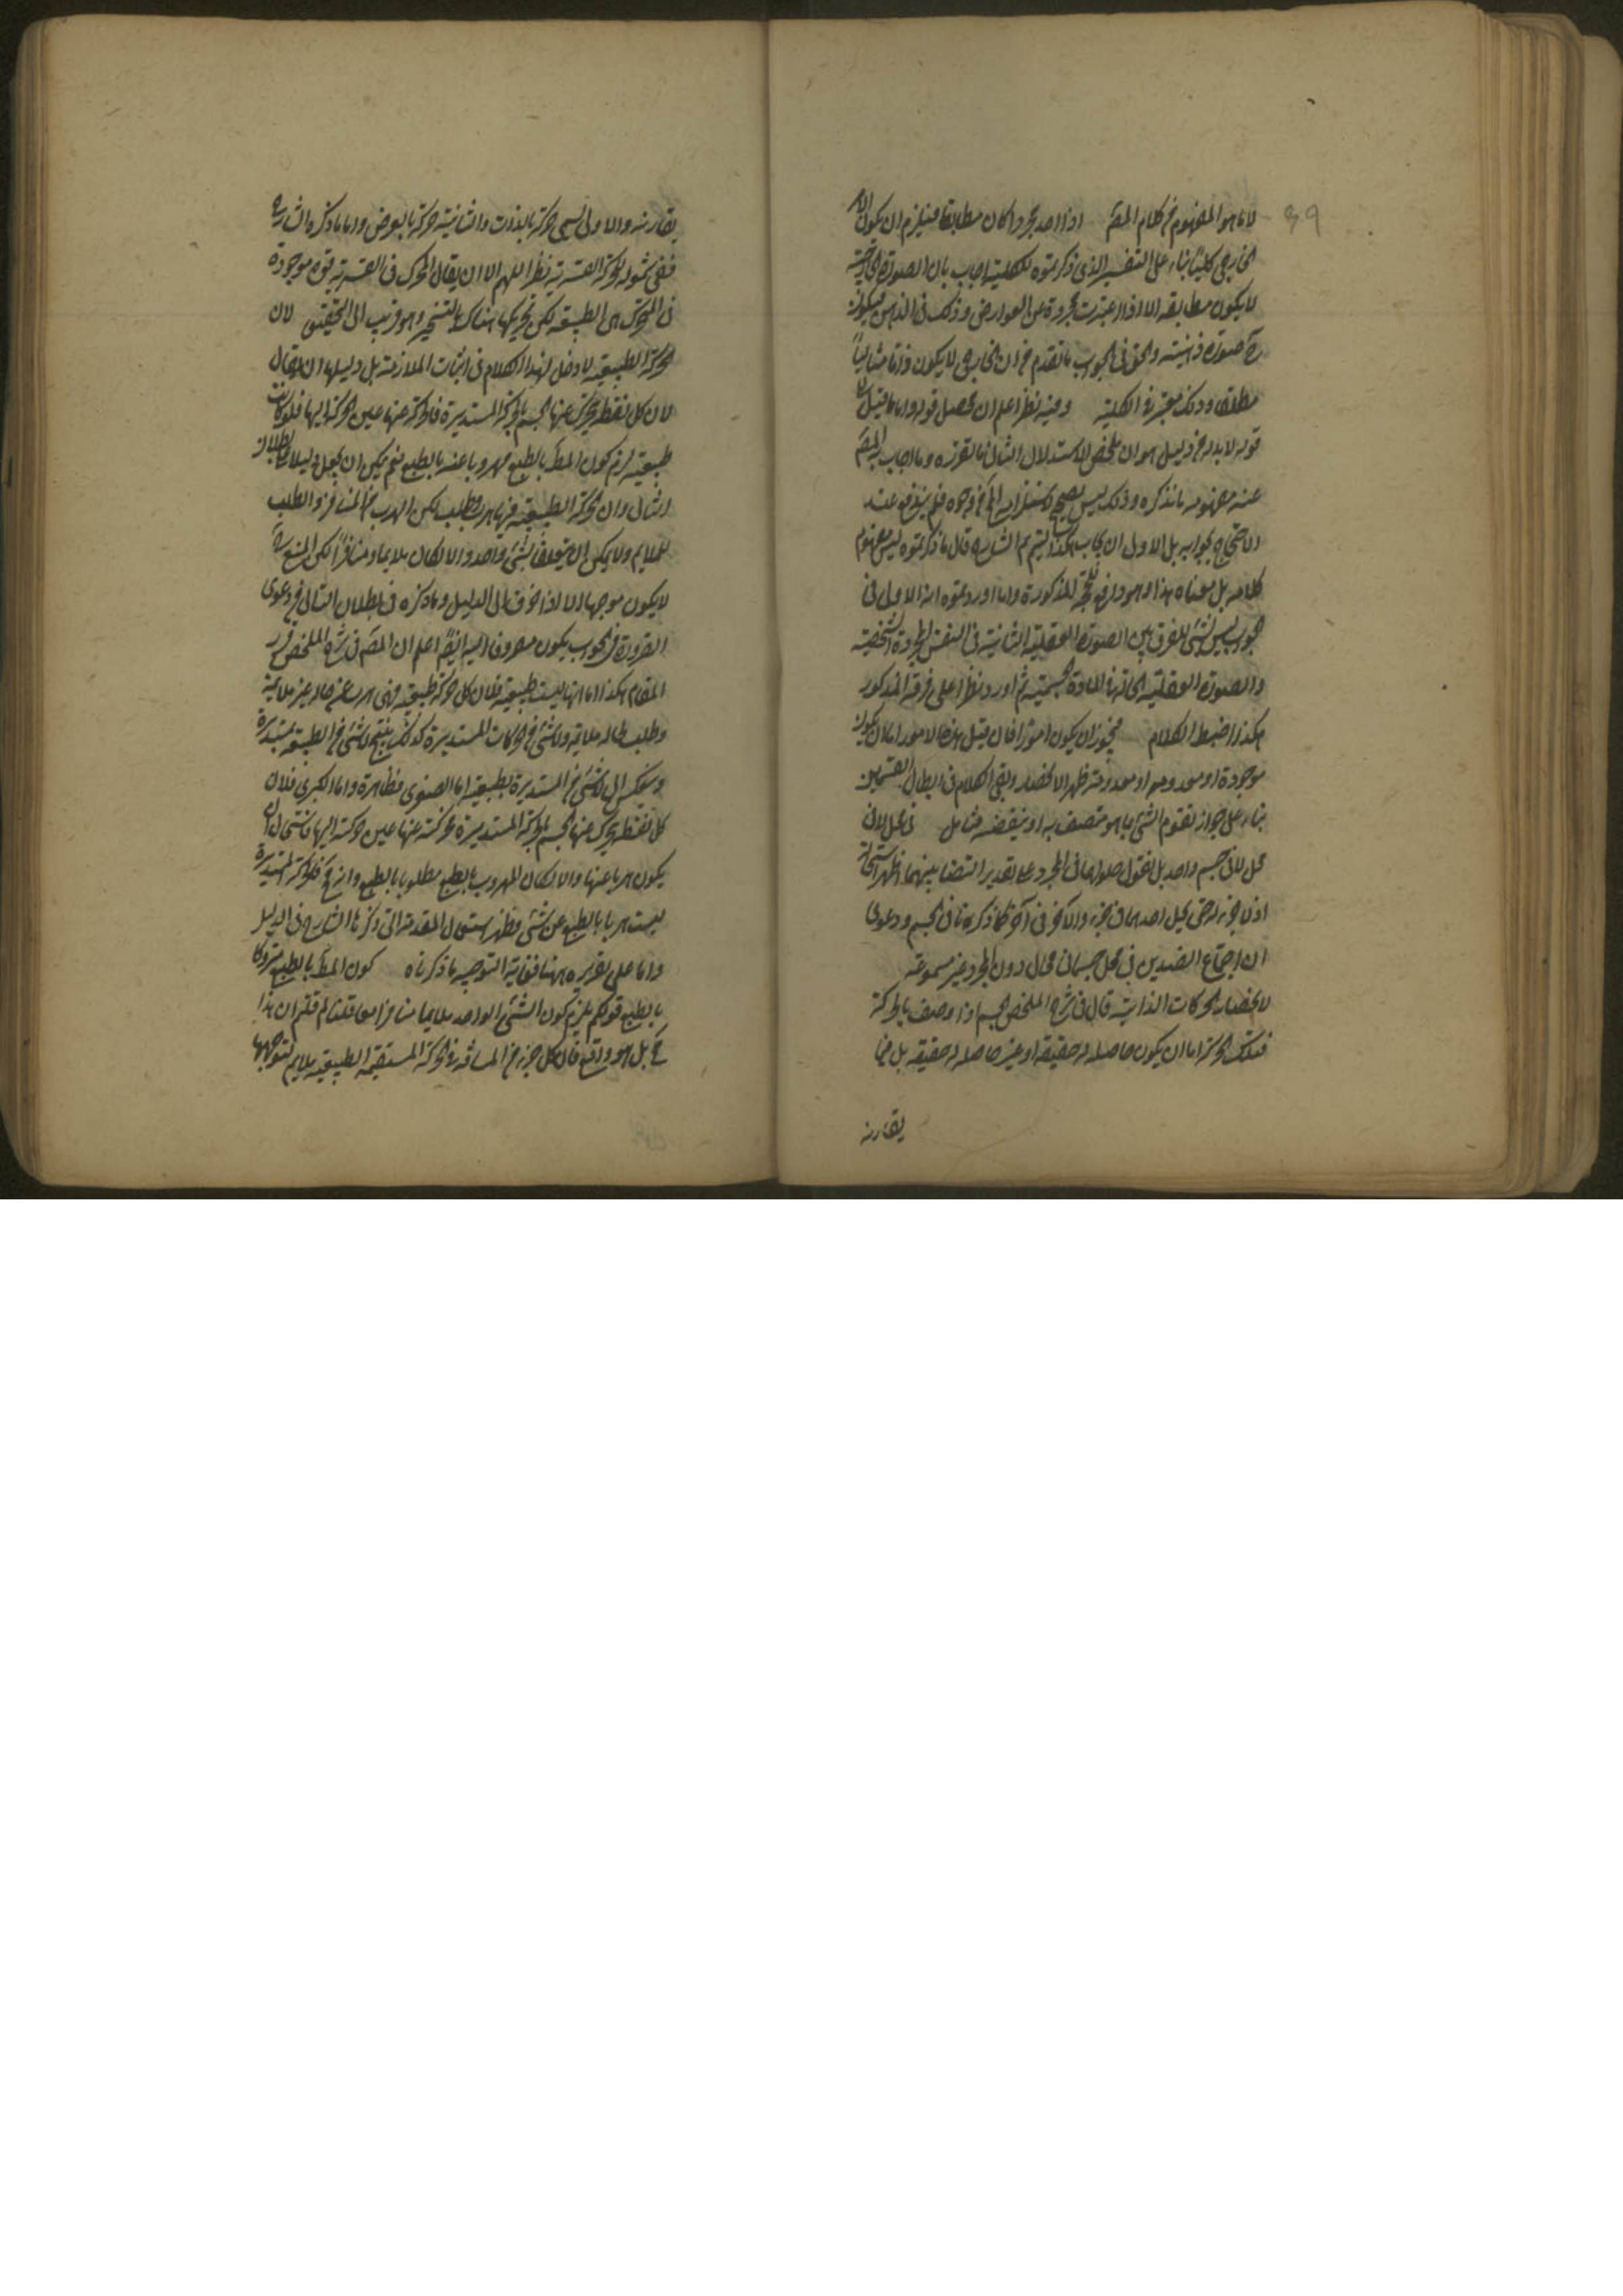 لا ما هو المفهوم من كلام المصَ اذا اخد مجردا كان مطابقا فيلزم ان يكون الامر
الخارجى كليا بناء على التفسير الذى ذكرتموه للكلية اجاب بان الصورة الخارجية
لا يكون مطابقة الا اذا اعتبرت مجردة عن العوارض وذلك فى الذهن فيكون
حَ صورة ذهنية والحق فى الجواب ما تقدم من ان الخارجى لا يكون ذاتا مثاليا
مطلقا وذلك معتبر فى الكلية وفيه نظر اعلم ان محصل قوله واما ما قيل
قوله لا بد له من دليل هو ان ملخص الاستدلال الثانى ما نقرره وما اجاب به المصَ
عنه مفهومه ما نذكره وذلك ليس بصحيح فلم يندفع عند
الاحتجاج بجوابه بل الاولى ان يجاب هكذا الشارح قال ما ذكرتموه ليس مفهوم
كلامه بل معناه هذا وهو دافع للحجة المذكورة واما اوردتموه انه الاول فى
الجواب ليس بشئ للفرق بين الصورة العقلية الثابتة فى النفس المجردة الشخصية
والصورة العقلية الحالة فى المادة الجسمية ثم اورد نظرا على فرقه المذكور
هكذا اضبط الكلام فيجوز ان يكون امورا فان قيل هذه الامور اما ان يكون
موجودة او معدومة او معدوما وقد ظهر الانحصار وبقى الكلام فى ابطال القسمين
بناء على جواز تقوم الشئ بما هو متصف به او بنقيضه فتامل فى محل لا فى
محل لا فى جسم واحد بل نقول حلولهما فى المجرد على تقدير التضاد بينهما اظهر استحالة
اذ لا جزء له حتى يحل احدهما فى جزء والآخر فى آخر كما ذكرنا فى الجسم ودعوى
ان اجتماع الضدين فى محل جسمانى محال دون المجرد غير مسموعة
لانحصار الحركات الذاتية قال فى شرح الملخص الجسم اذا وصف بالحركة
فتلك الحركة اما ان يكون حاصلة له حقيقة او غير حاصلة له حقيقة بل فيما
يقارنه
يقارنه والاولى تسمى حركة بالذات والثانية حركة بالعرض واما ما ذكره الشارح
ففى شموله للحركة القسرية نظر اللهم الا ان يقال المحرك فى القسرية قوة موجودة
فى المتحرك هى الطبيعة لكن تحريكها هناك بالتسخير وهو قريب الى التحقيق لان
الحركة الطبيعية لا دخل لهذا الكلام فى اثبات الملازمة بل دليلها ان يقال
لان كل نقطة يتحرك عنها الجسم بالحركة المستديرة فالحركة عنها عين الحركة اليها فلو كانت
طبيعية لزم كون المطَ بالطبع مهروبا عنه بالطبع نعم يمكن ان يجعل دليلا على بطلان
التالى وان الحركة الطبيعية فيها هرب وطلب لكن الهرب من المنافر والطلب
للملايم ولا يمكن ان يتعلقا بشئ واحد والا لكان ملايما ومنافرا لكن المنع حَ
لا يكون موجها الا اذا صرف الى الدليل وما ذكره فى بطلان التالى من دعوى
الضرورة فى الجواب يكون مصروفا اليه ايضا اعلم ان المصَ فى شرح الملخص قرر
المقام هكذا اما انها ليست طبيعية فلان كل حركة طبيعية فهى هرب عن حالة غير ملايمة
وطلب حالة ملايمة ولا شئ من الحركات المستديرة كذلك ينتج لا شئ من الطبيعية بمستديرة
وينعكس الى لا شئ من المستديرة بطبيعية اما الصغرى فظاهرة واما الكبرى فلان
كل نقطة يتحرك عنها الجسم بالحركة المستديرة فحركته عنها عين حركته اليها فاستحال ان
يكون هربا عنها والا لكان المهروب بالطبع مطلوبا بالطبع فالحركة المستديرة
ليست هربا بالطبع عن شئ فظهر استعمال المقدمة التى ذكرها الشارح فى الدليل
واما على تقريره ههنا فغاية التوجيه ما ذكرناه كون المطَ بالطبع متروكا
بالطبع قولكم يلزم كون الشئ الواحد ملايما منافرا معا قلنا لم قلتم ان هذا
محَ بل هو واقع فان كل جزء من المسافة فى الحركة المستقيمة الطبيعية ملايم لتوجهها